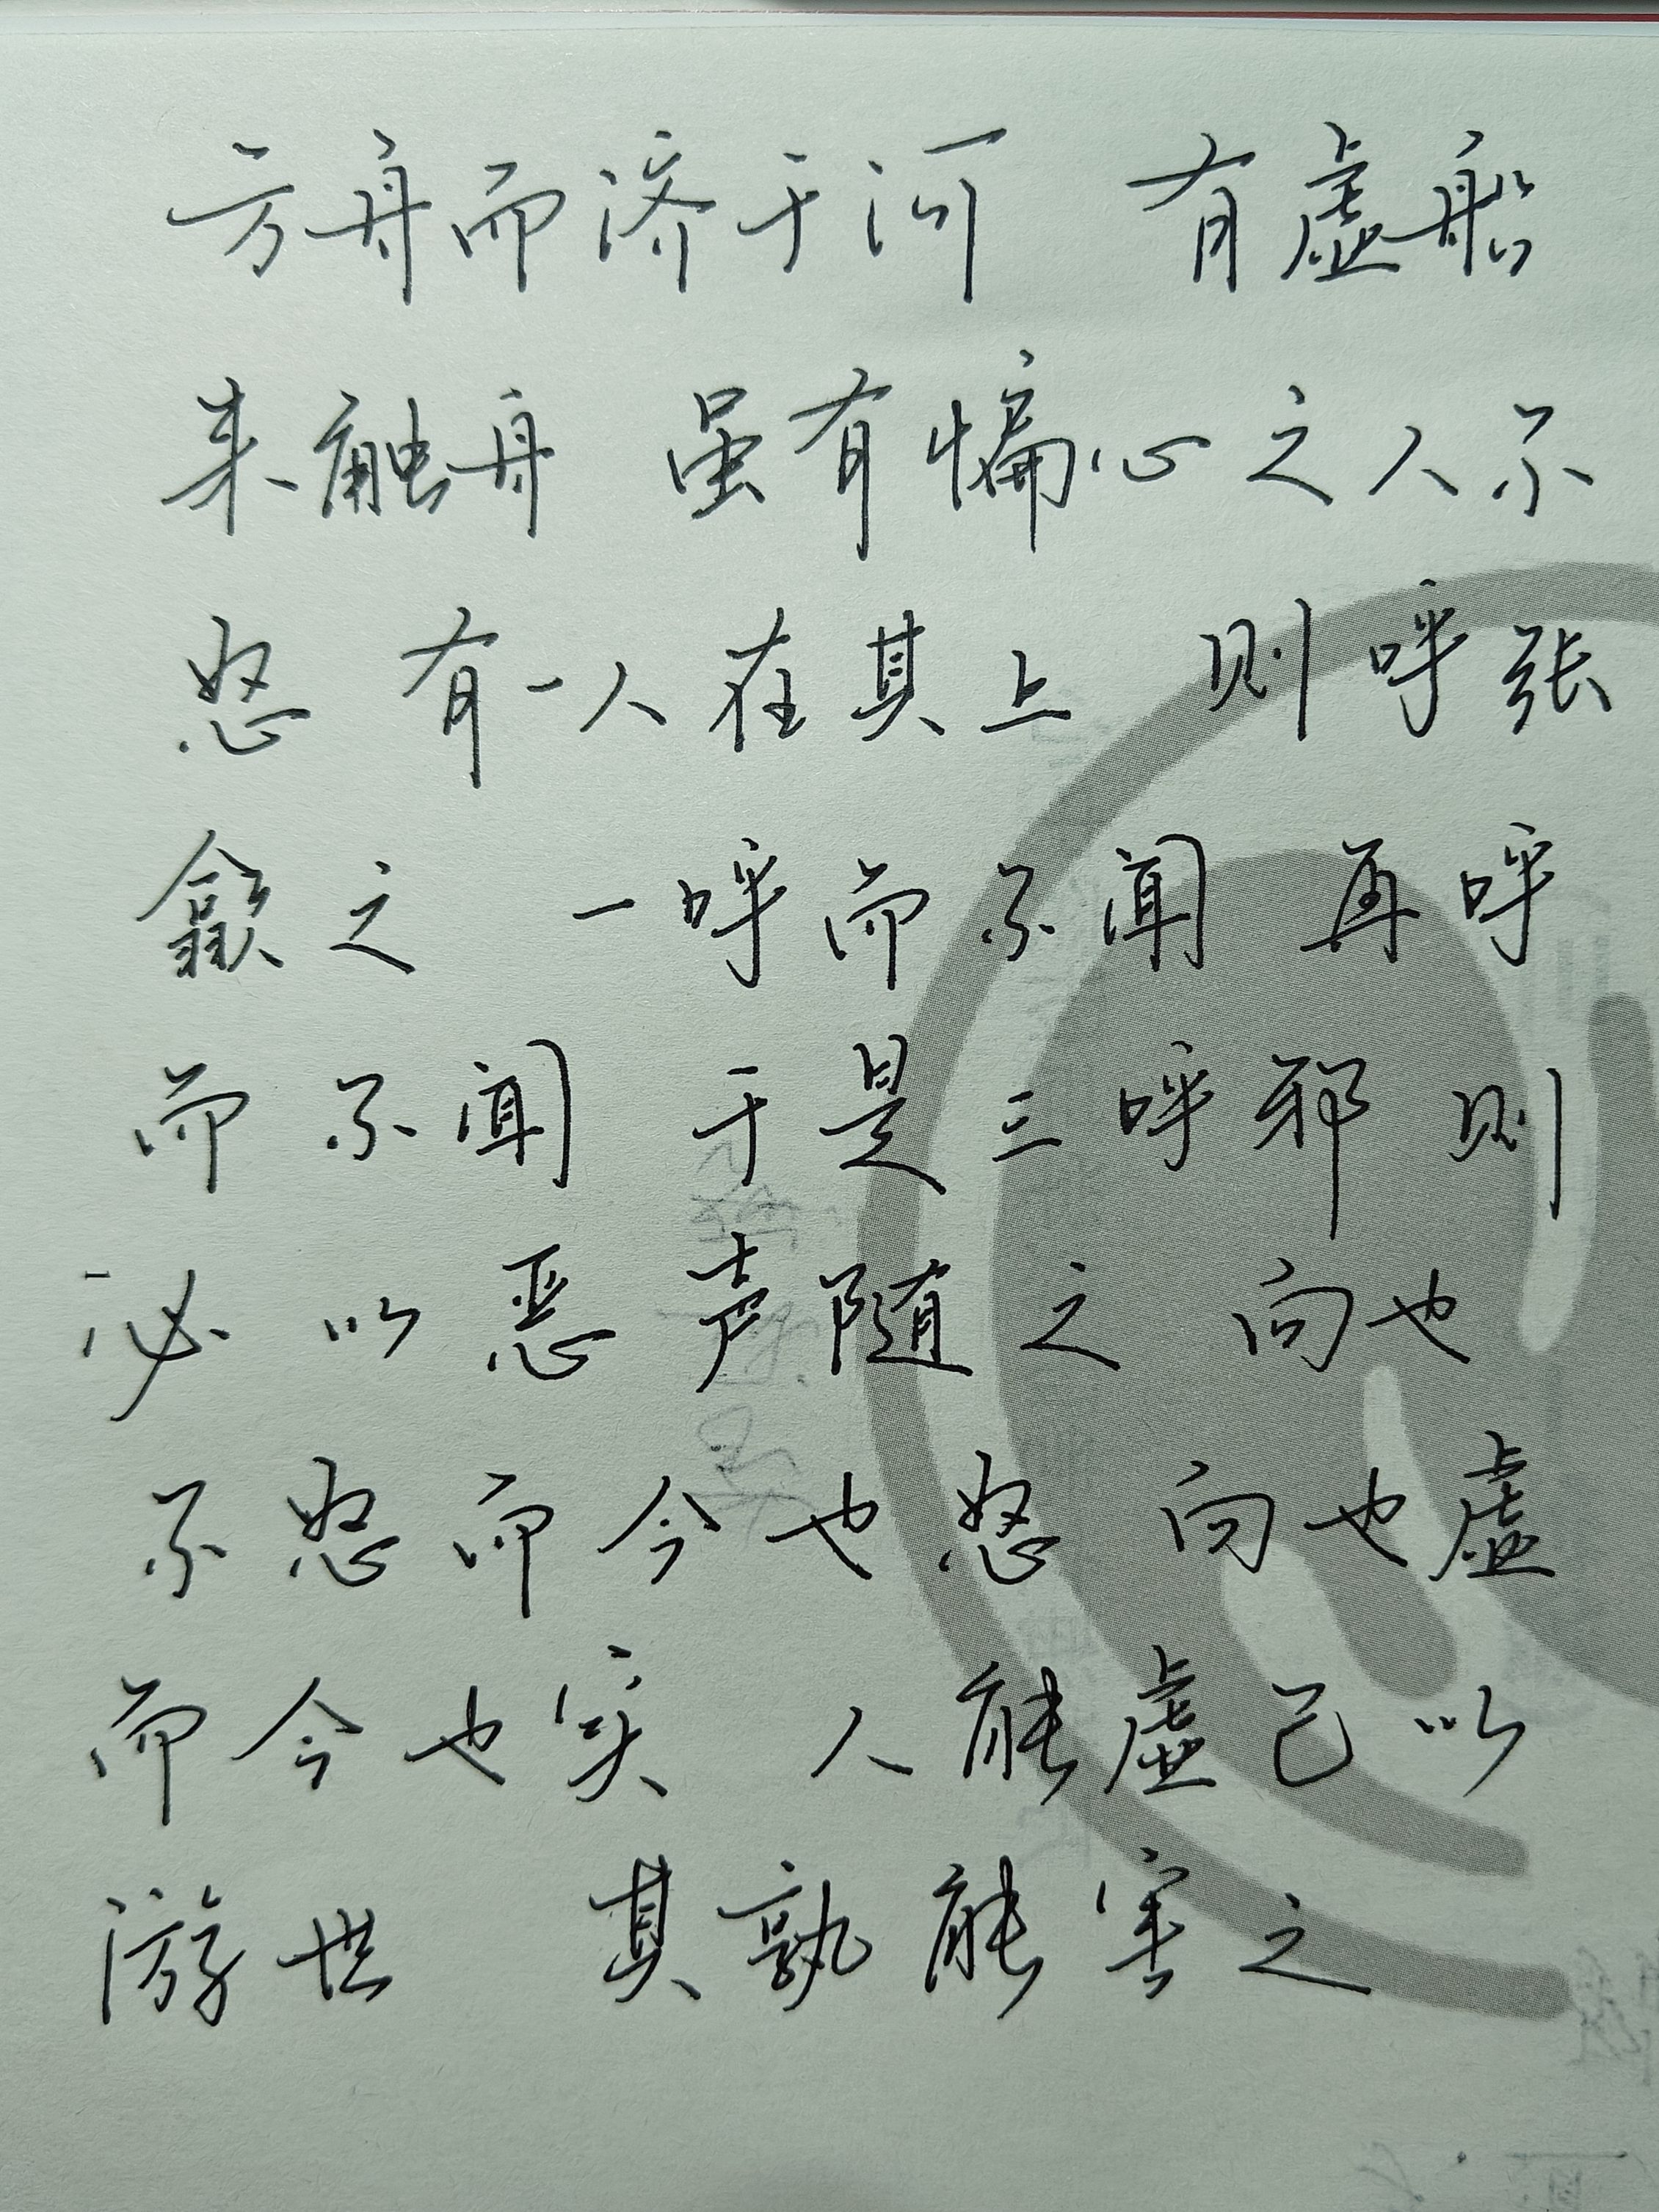 方舟而济于河 有虚船
来触舟 虽有惼心之人不
怒 有一人在其上 则呼张
歙之 一呼而不闻 再呼
而不闻 于是三呼邪 则
必以恶声随之 向也
不怒而今也怒 向也虚
而今也实 人能虚己以
游世 其孰能害之